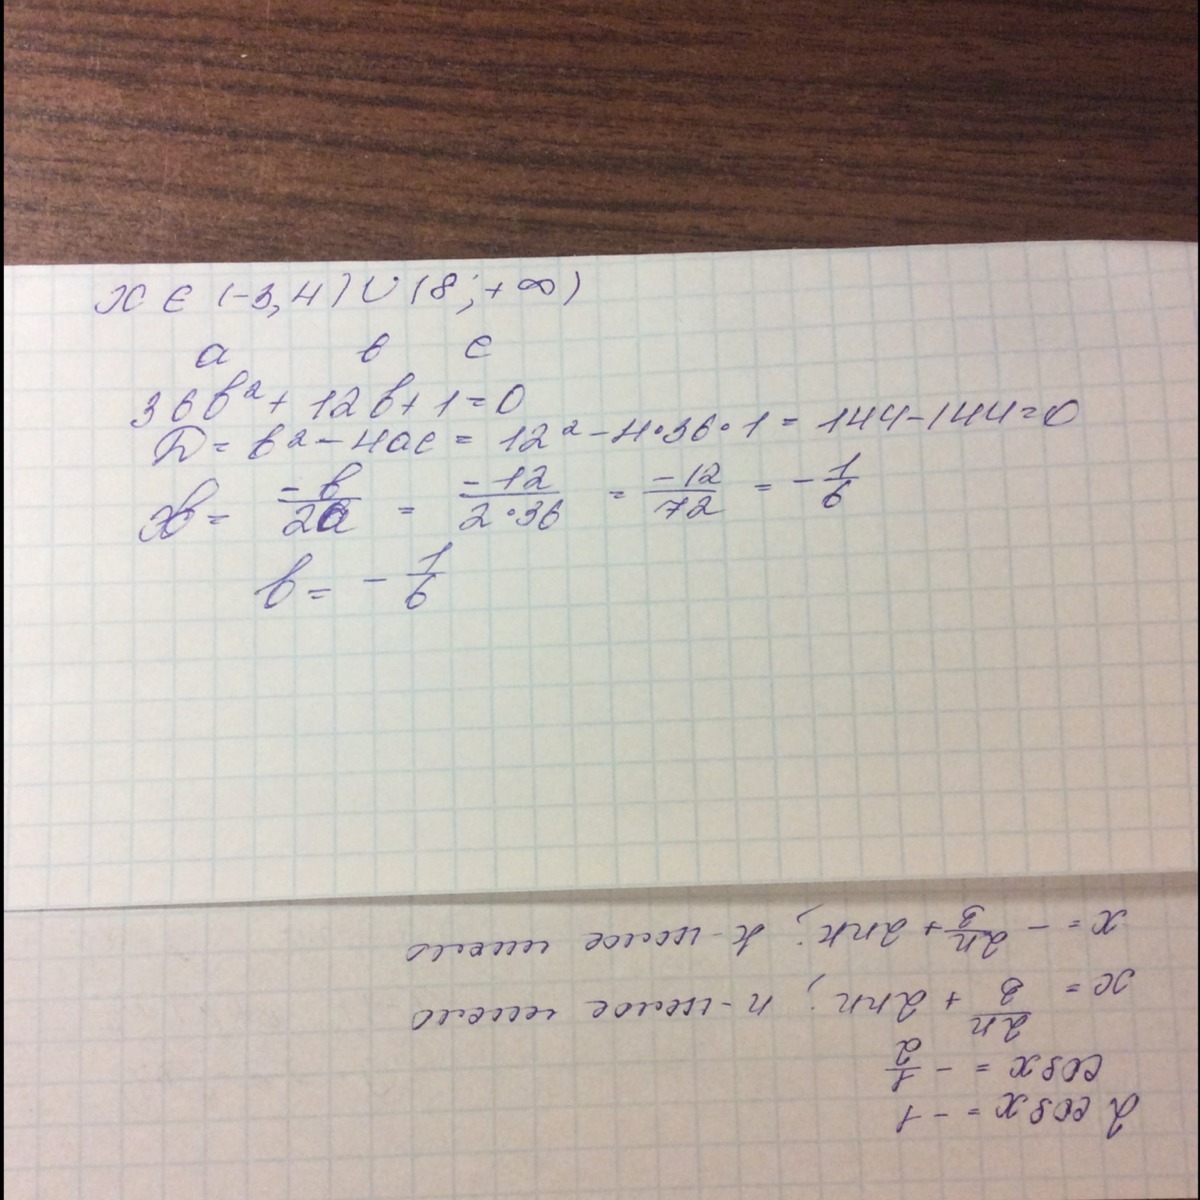 x ∈ (-3,4) ∪ (8;+∞)
a в c
36b² + 12b + 1 = 0
D = b² - 4ac = 12² - 4·36·1 = 144 - 144 = 0
xb = -b/2a = -12/2·36 = -12/72 = -1/6
b = -1/6
2cosx = -1
cosx = -1/2
x = 2π/3 + 2πn; n-целое число
x = -2π/3 + 2πk; k-целое число